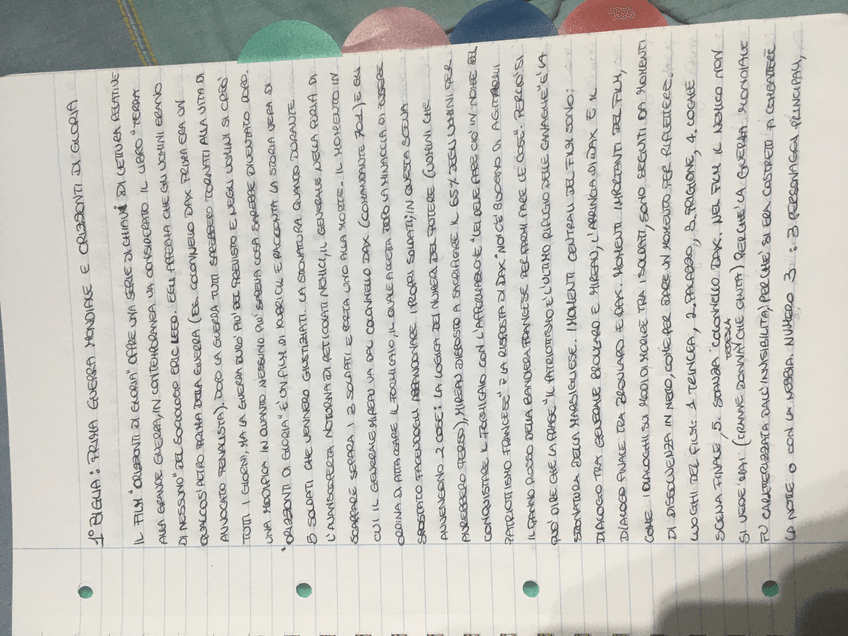 1° BIGLIA: PRIMA GUERRA MONDIALE E ORIZZONTI DI GLORIA
IL FILM "ORIZZONTI DI GLORIA" OFFRE UNA SERIE DI CHIAVI DI LETTURA RELATIVE
ALLA GRANDE GUERRA, IN CONTEMPORANEA VA CONSIDERATO IL LIBRO "TERRA
DI NESSUNO" DEL SOCIOLOGO ERIC LEED. EGLI AFFERMA CHE GLI UOMINI ERANO
QUALCOS'ALTRO PRIMA DELLA GUERRA (ES. COLONNELLO DAX PRIMA ERA UN
AVVOCATO PENALISTA). DOPO LA GUERRA TUTTI SAREBBERO TORNATI ALLA VITA DI
TUTTI I GIORNI, MA LA GUERRA DURÒ PIÙ DEL PREVISTO E NEGLI UOMINI SI CREÒ
UNA MODIFICA IN QUANTO NESSUNO PIÙ SAPEVA COSA SAREBBE DIVENTATO DOPO.
"ORIZZONTI DI GLORIA" È UN FILM DI KUBRICK E RACCONTA LA STORIA VERA DI
SOLDATI CHE VENNERO GIUSTIZIATI. LA SFONATURA QUANDO DURANTE
L'AVANSCOPERTA NOTTURNA DI RETICOLATI NEMICI, IL GENERALE NELLA FORIA DI
SCAPPARE SEPARA I 3 SOLDATI E PORTA UNO ALLA MORTE. IL MOMENTO IN
CUI IL GENERALE MIREAU VA DAL COLONNELLO DAX (COMANDANTE 701) E GLI
ORDINA DI ATTACCARE IL FORMICAIO, IL QUALE ACCETTA DOPO LA MINACCIA DI ESSERE
SPOSTATO FACENDOGLI ABBANDONARE I PROPRI SOLDATI; IN QUESTA SCENA
AVVENGONO 2 COSE: LA LOGICA DEI NUMERI DEL POTERE (UOMINI CHE
AVREBBERO PERSO), MIREAU DISPOSTO A SACRIFICARE IL 65% DEGLI UOMINI PER
CONQUISTARE IL FORMICAIO CON L'AFFERMAZIONE "LEI DEVE FARE CIÒ IN NOME DEL
PATRIOTTISMO FRANCESE" E LA RISPOSTA DI DAX "NON C'È BISOGNO DI AGITARMI
IL PANNO ROSSO DELLA BANDIERA FRANCESE PER FARMI FARE LE COSE". PERCIÒ SI
PUÒ DIRE CHE LA FRASE "IL PATRIOTTISMO È L'ULTIMO RIFUGIO DELLE CANAGLIE" È LA
SFONATURA DELLA MARSIGLIESE. I MOMENTI CENTRALI DEL FILM SONO:
DIALOGO TRA GENERALE BROULARD E MIREAU, L'ARRINGA DI DAX E IL
DIALOGO FINALE TRA BROULARD E DAX. MOMENTI IMPORTANTI DEL FILM,
COME I DIALOGHI SUI MODI DI MORIRE TRA I SOLDATI, SONO SEGUITI DA MOMENTI
DI DISSOLVENZA IN NERO, COME PER DARE UN MOMENTO PER RIFLETTERE.
LUOGHI DEL FILM: 1. TRINCEA, 2. PALAZZO, 3. PRIGIONE, 4. LOCALE
SCENA FINALE, 5. STANZA COLONNELLO DAX. NEL FILM IL NEMICO NON
SI VEDE MAI (TRANNE DONNA TEDESCA CHE CANTA) PERCHÉ LA GUERRA MONDIALE
FU CARATTERIZZATA DALL'INVISIBILITÀ, PERCHÉ SI ERA COSTRETTI A COMBATTERE
LA NOTTE O CON LA NEBBIA. NUMERO 3: 3 PERSONAGGI PRINCIPALI,